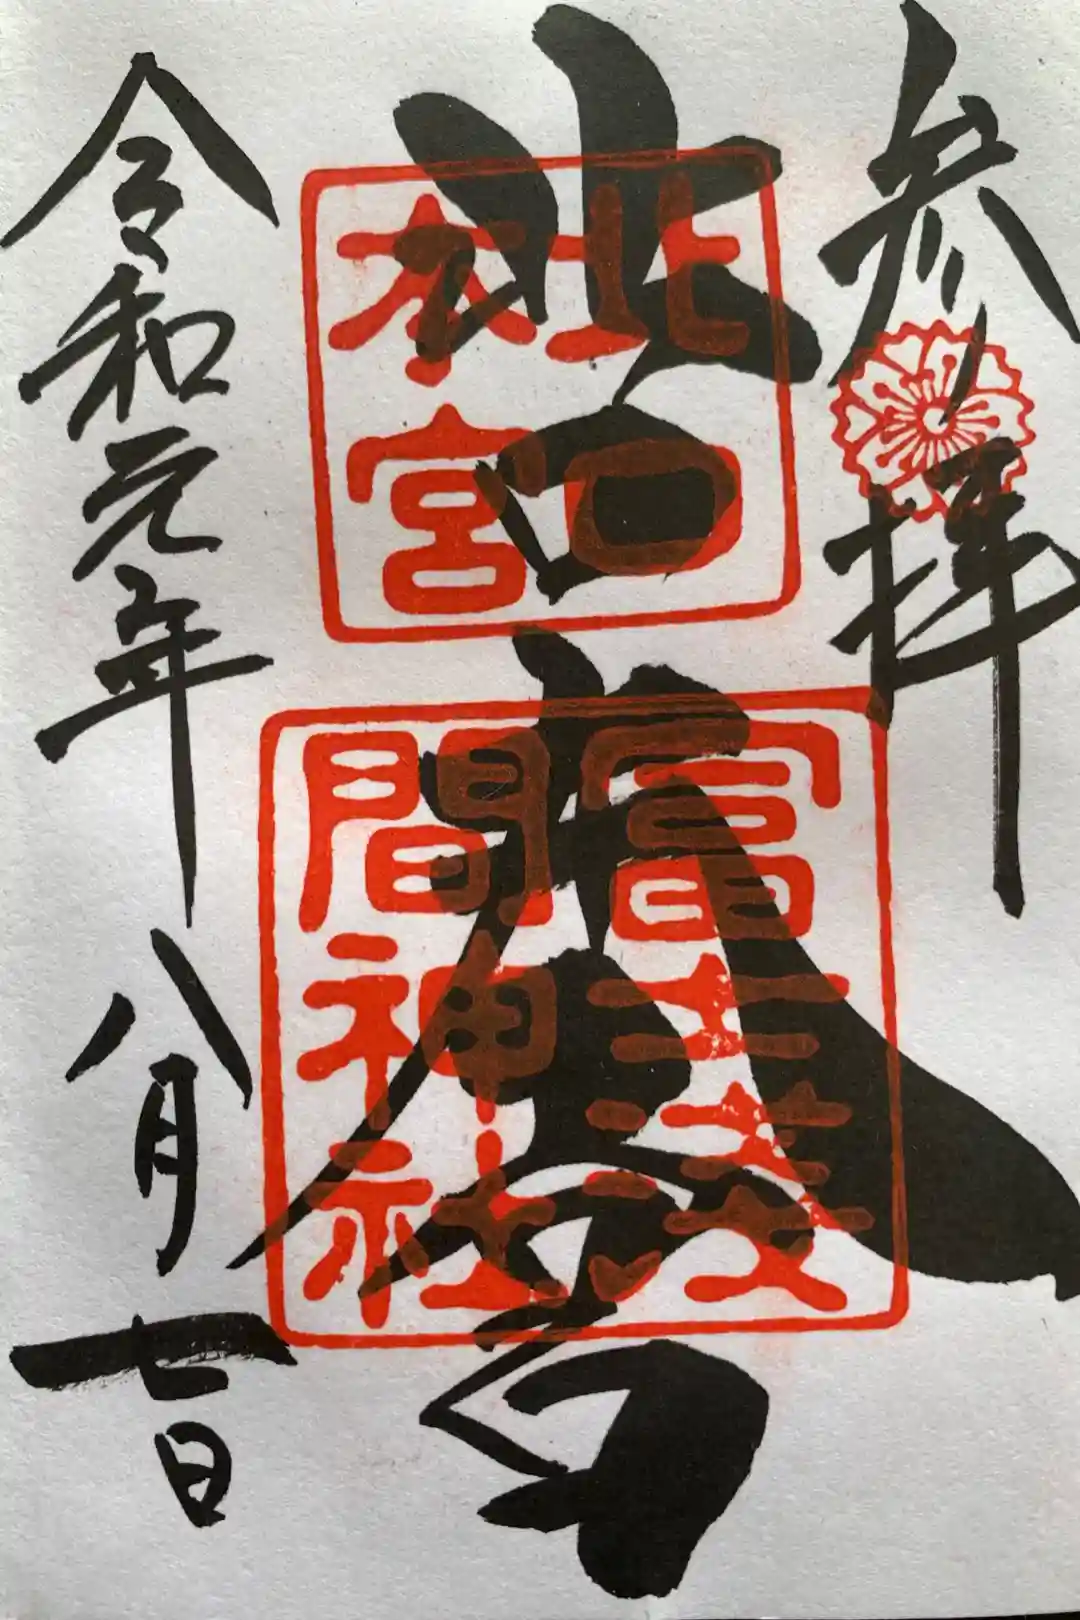 参拝
北口本宮
令和元年八月七日
北口
本宮
冨士淺
間神社